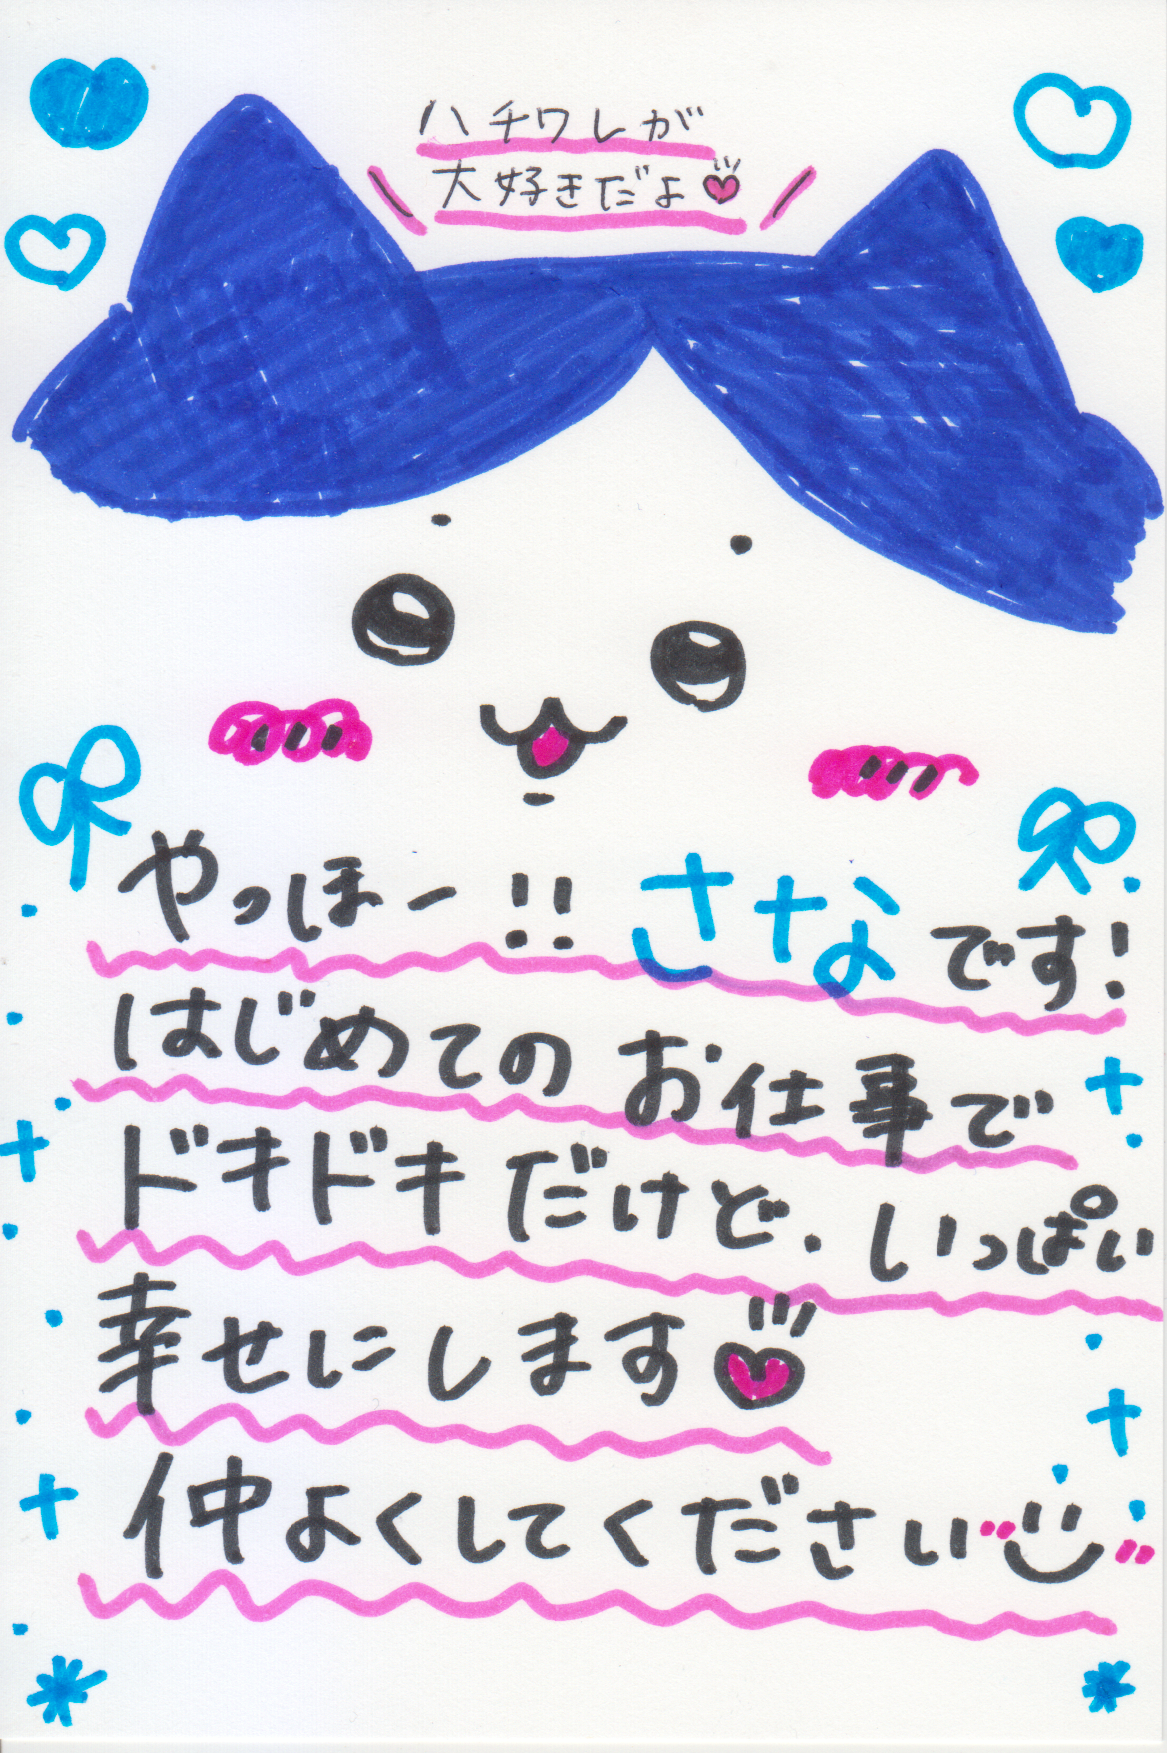 ハチワレが
大好きだよ
やっほー!! さなです!
はじめてのお仕事で
ドキドキだけど、いっぱい
幸せにします
仲よくしてください